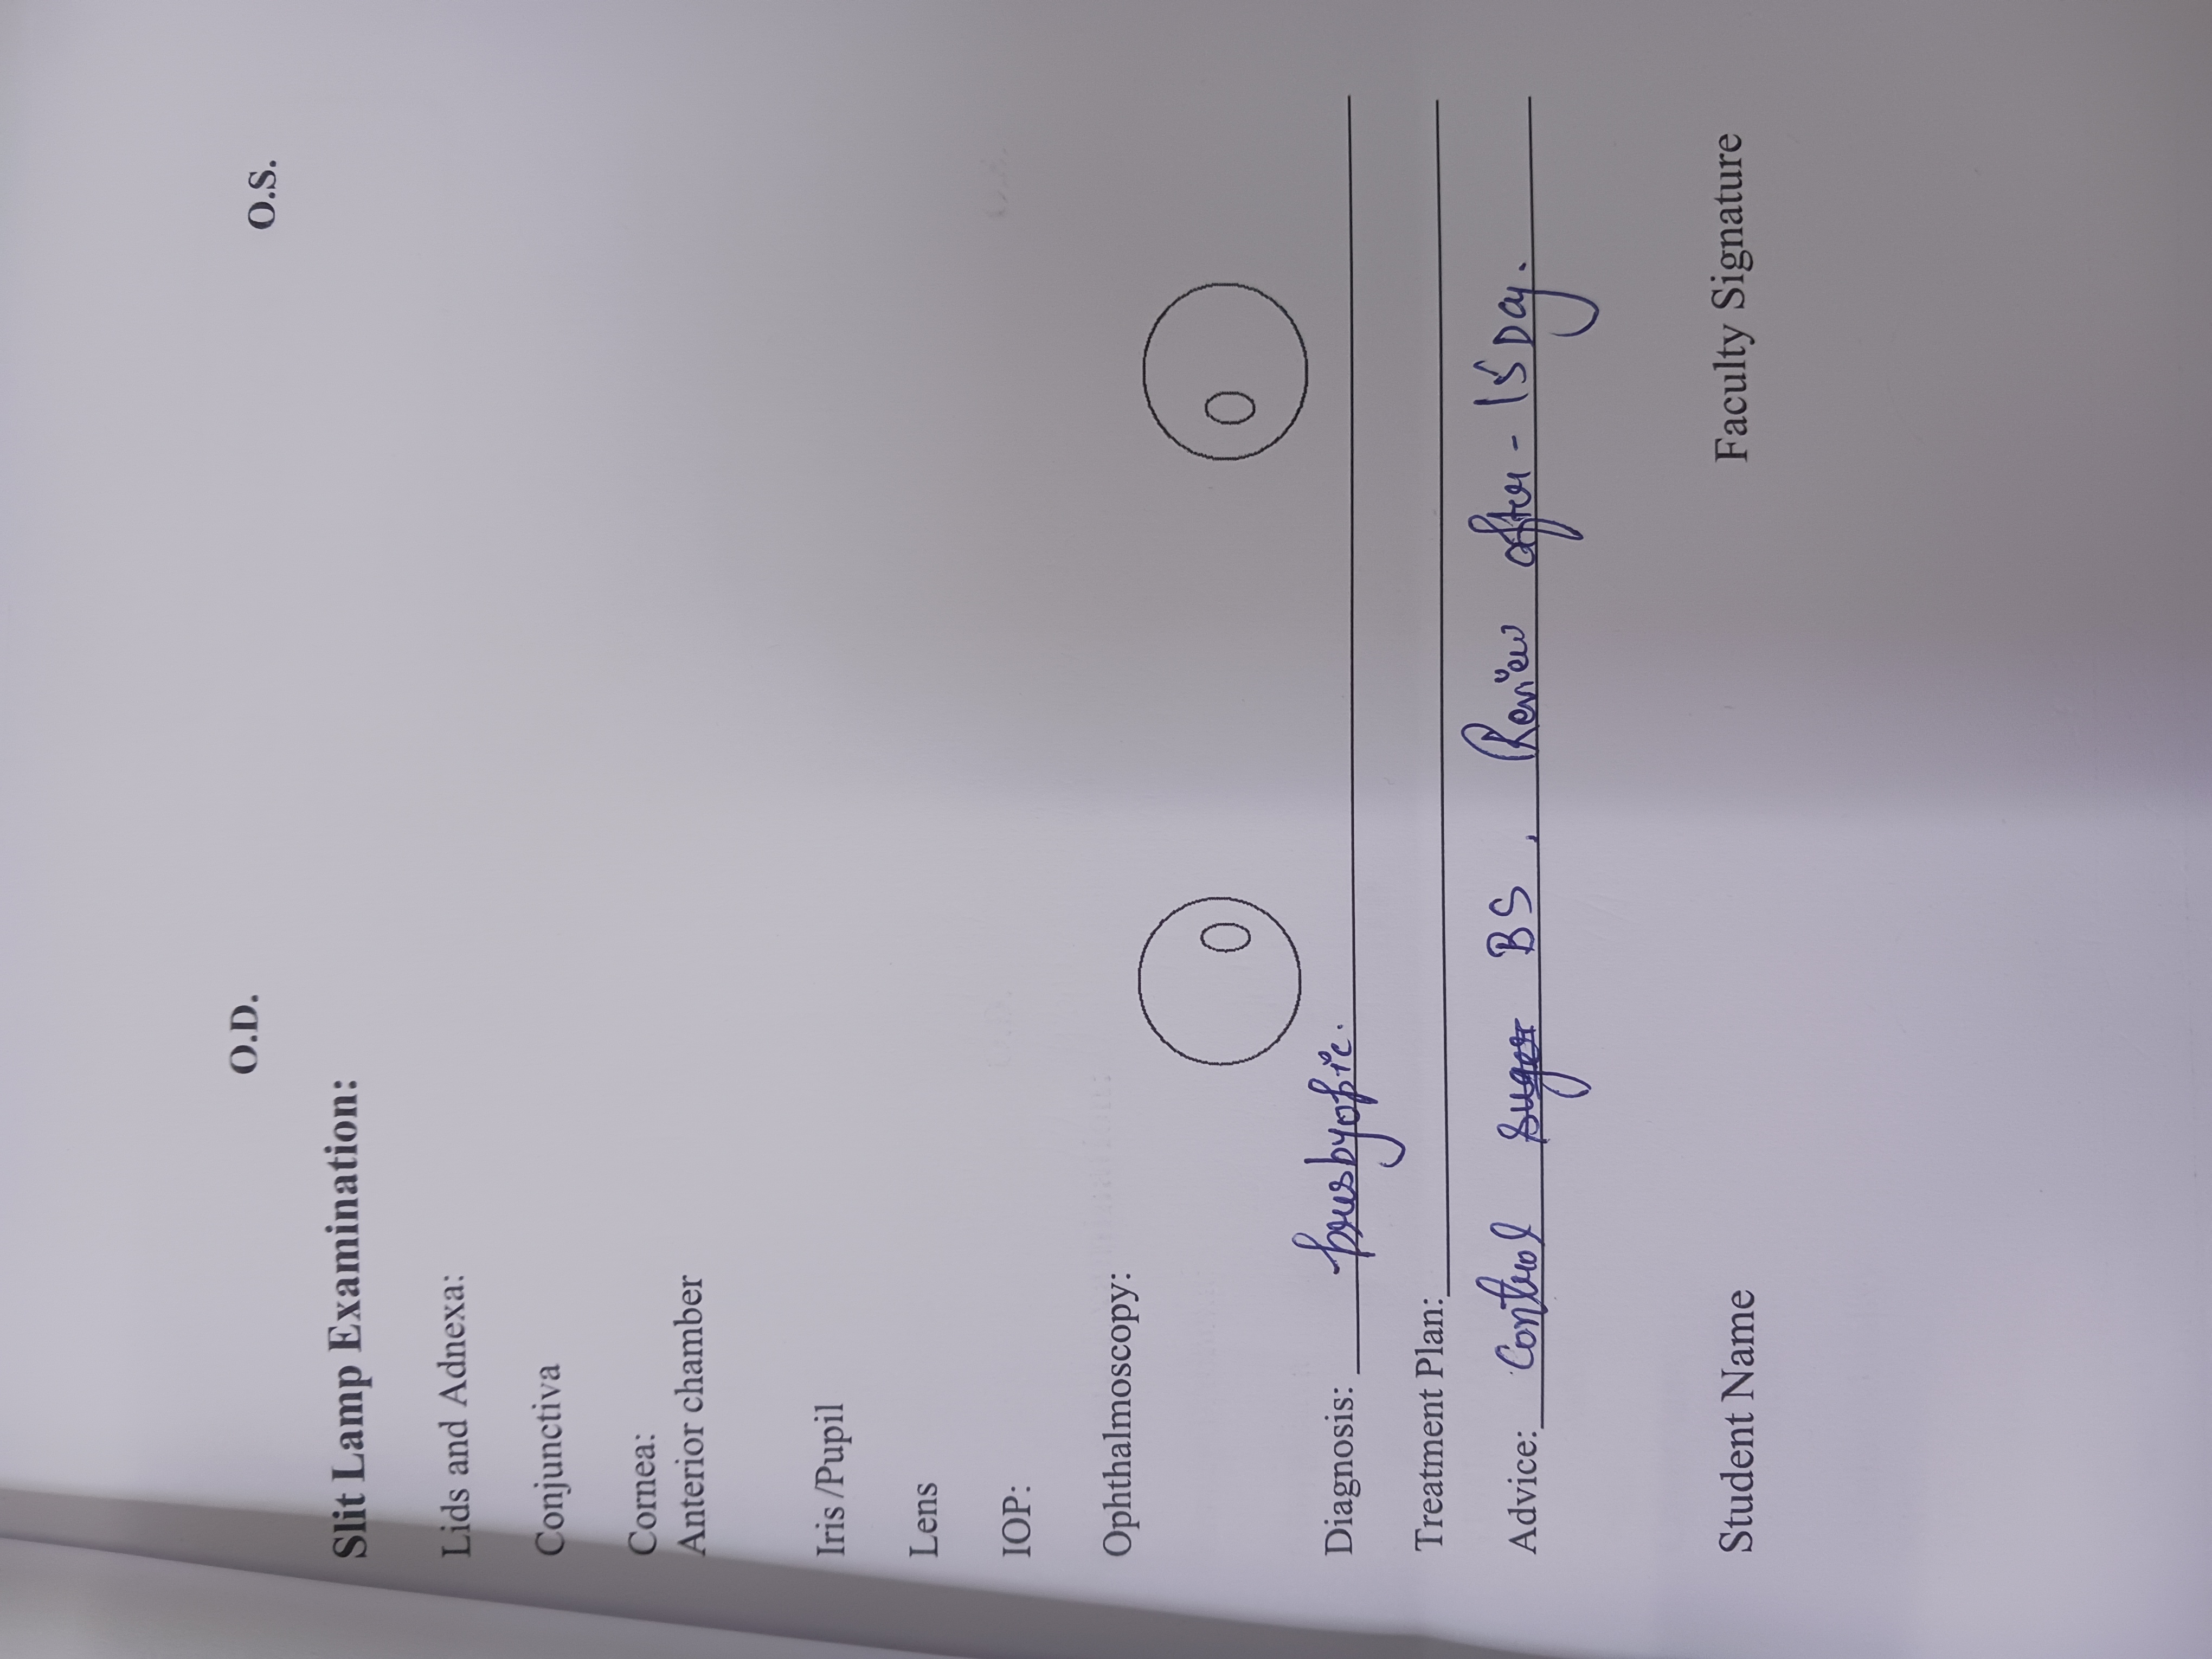 O.D. O.S.
Slit Lamp Examination:
Lids and Adnexa:
Conjunctiva
Cornea:
Anterior chamber
Iris /Pupil
Lens
IOP:
Ophthalmoscopy:
Diagnosis: Presbyopic.
Treatment Plan:
Advice: Control suger BS, Review after - 15 Day.
Student Name Faculty Signature